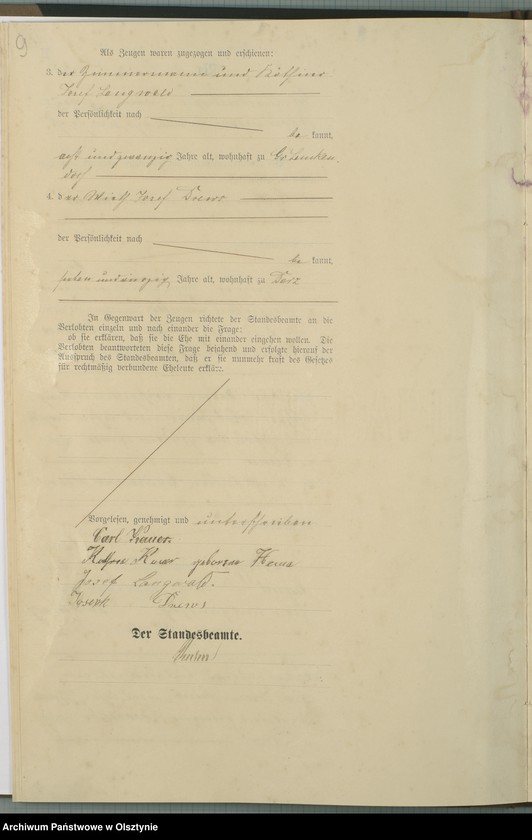 9
Als Zeugen waren zugezogen und erschienen:
3. der Zimmermann und Käthner
Josef Langwald
der Persönlichkeit nach
be kannt,
acht und zwanzig Jahre alt, wohnhaft zu Gr. Lemken-
dorf
4. der Wirth Josef Drews
der Persönlichkeit nach
be kannt,
sieben und Jahre alt, wohnhaft zu Derz
In Gegenwart der Zeugen richtete der Standesbeamte an die
Verlobten einzeln und nach einander die Frage:
ob sie erklären, daß sie die Ehe mit einander eingehen wollen. Die
Verlobten beantworteten diese Frage bejahend und erfolgte hierauf der
Ausspruch des Standesbeamten, daß er sie nunmehr kraft des Gesetzes
für rechtmäßig verbundene Eheleute erkläre.
Vorgelesen, genehmigt und unterschrieben
Carl
geborene
Josef Langwald.
Josepk Drews
Der Standesbeamte.
Archiwum Państwowe w Olsztynie